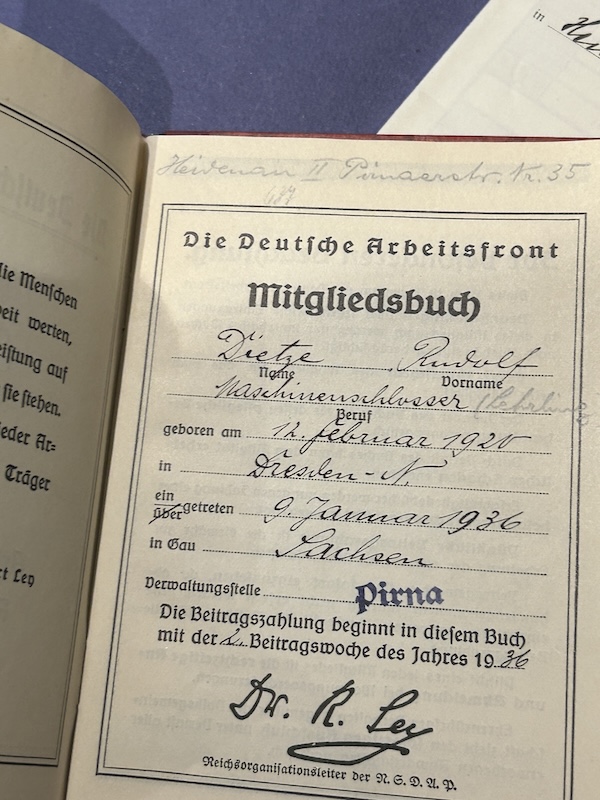 in
die Menschen
beit werten,
eistung auf
sie stehen.
jeder Ar=
Träger
rt Ley
Heidenau II Pirnaerstr. Nr. 35
Die Deutsche Arbeitsfront
Mitgliedsbuch
Dietze Rudolf
Name Vorname
Maschinenschlosser (Lehrling)
Beruf
geboren am 12. Februar 1920
in Dresden-N.
ein
über getreten 9. Januar 1936
in Gau Sachsen
Verwaltungsstelle Pirna
Die Beitragszahlung beginnt in diesem Buch
mit der 2. Beitragswoche des Jahres 1936
Dr. R. Ley
Reichsorganisationsleiter der N. S. D. A. P.